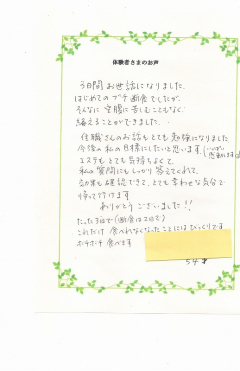 体験者さまのお声
3日間お世話になりました
はじめてのプチ断食でしたが、
そんなに空腹に苦しむこともなく
終えることができました。
住職さんのお話もとても勉強になりました
今後の私の目標にしたいと思います
エステもとても気持ちよくて、
私の質問にもしっかり答えてくれて、
効果も確認できて、とても幸せな気分で
帰って行けます
ありがとうございました!!
たった3日で(断食は2日で)
これだけ食べれなくなったことにはびっくりです
ボチボチ食べます
54才